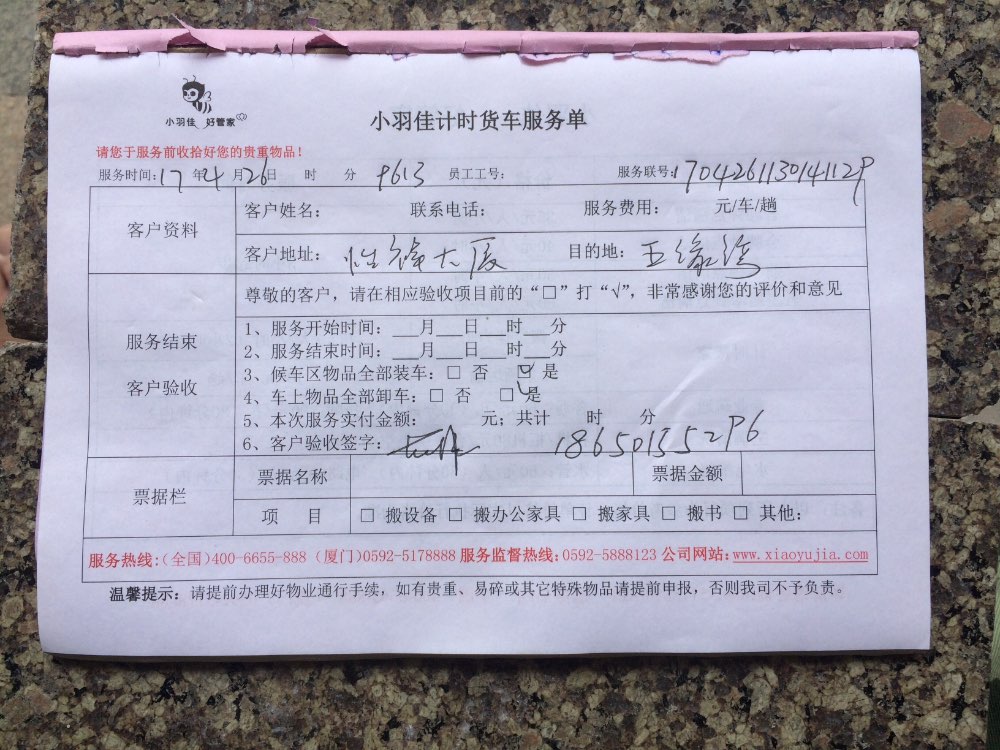 小羽佳 好管家
小羽佳计时货车服务单
请您于服务前收拾好您的贵重物品！
服务时间：17 年 4 月 26 日 时 分 9613 员工工号： 服务联号：1704261130141129
客户资料
客户姓名： 联系电话： 服务费用： 元/车/趟
客户地址： 大厦 目的地：五缘湾
服务结束
客户验收
尊敬的客户，请在相应验收项目前的“□”打“√”，非常感谢您的评价和意见
1、服务开始时间：___月___日___时___分
2、服务结束时间：___月___日___时___分
3、候车区物品全部装车：□ 否 ☑ 是
4、车上物品全部卸车：□ 否 □ 是
5、本次服务实付金额： 元；共计 时 分
6、客户验收签字： 18650155296
票据栏
票据名称 票据金额
项 目 □ 搬设备 □ 搬办公家具 □ 搬家具 □ 搬书 □ 其他：
服务热线：(全国)400-6655-888 (厦门)0592-5178888 服务监督热线：0592-5888123 公司网站：www.xiaoyujia.com
温馨提示：请提前办理好物业通行手续，如有贵重、易碎或其它特殊物品请提前申报，否则我司不予负责。